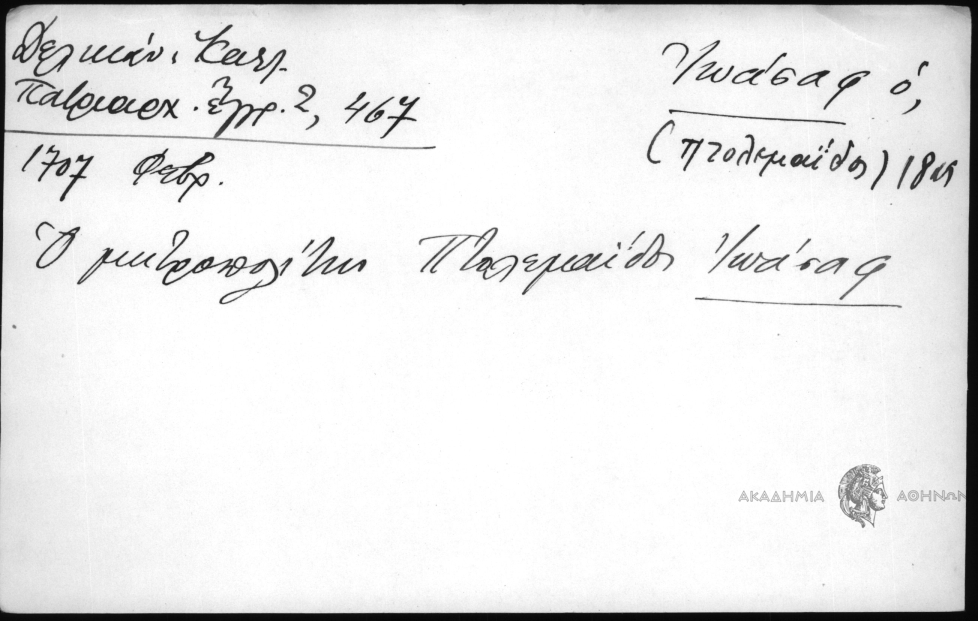 Δελικάν. Καλλ.
Πατριαρχ. Ἔγγρ. 2, 467
Ἰωάσαφ ὁ,
(Πτολεμαΐδος) 18ος
1707 Φεβρ.
Ὁ μητροπολίτης Πτολεμαΐδος Ἰωάσαφ
ΑΚΑΔΗΜΙΑ ΑΘΗΝΩΝ